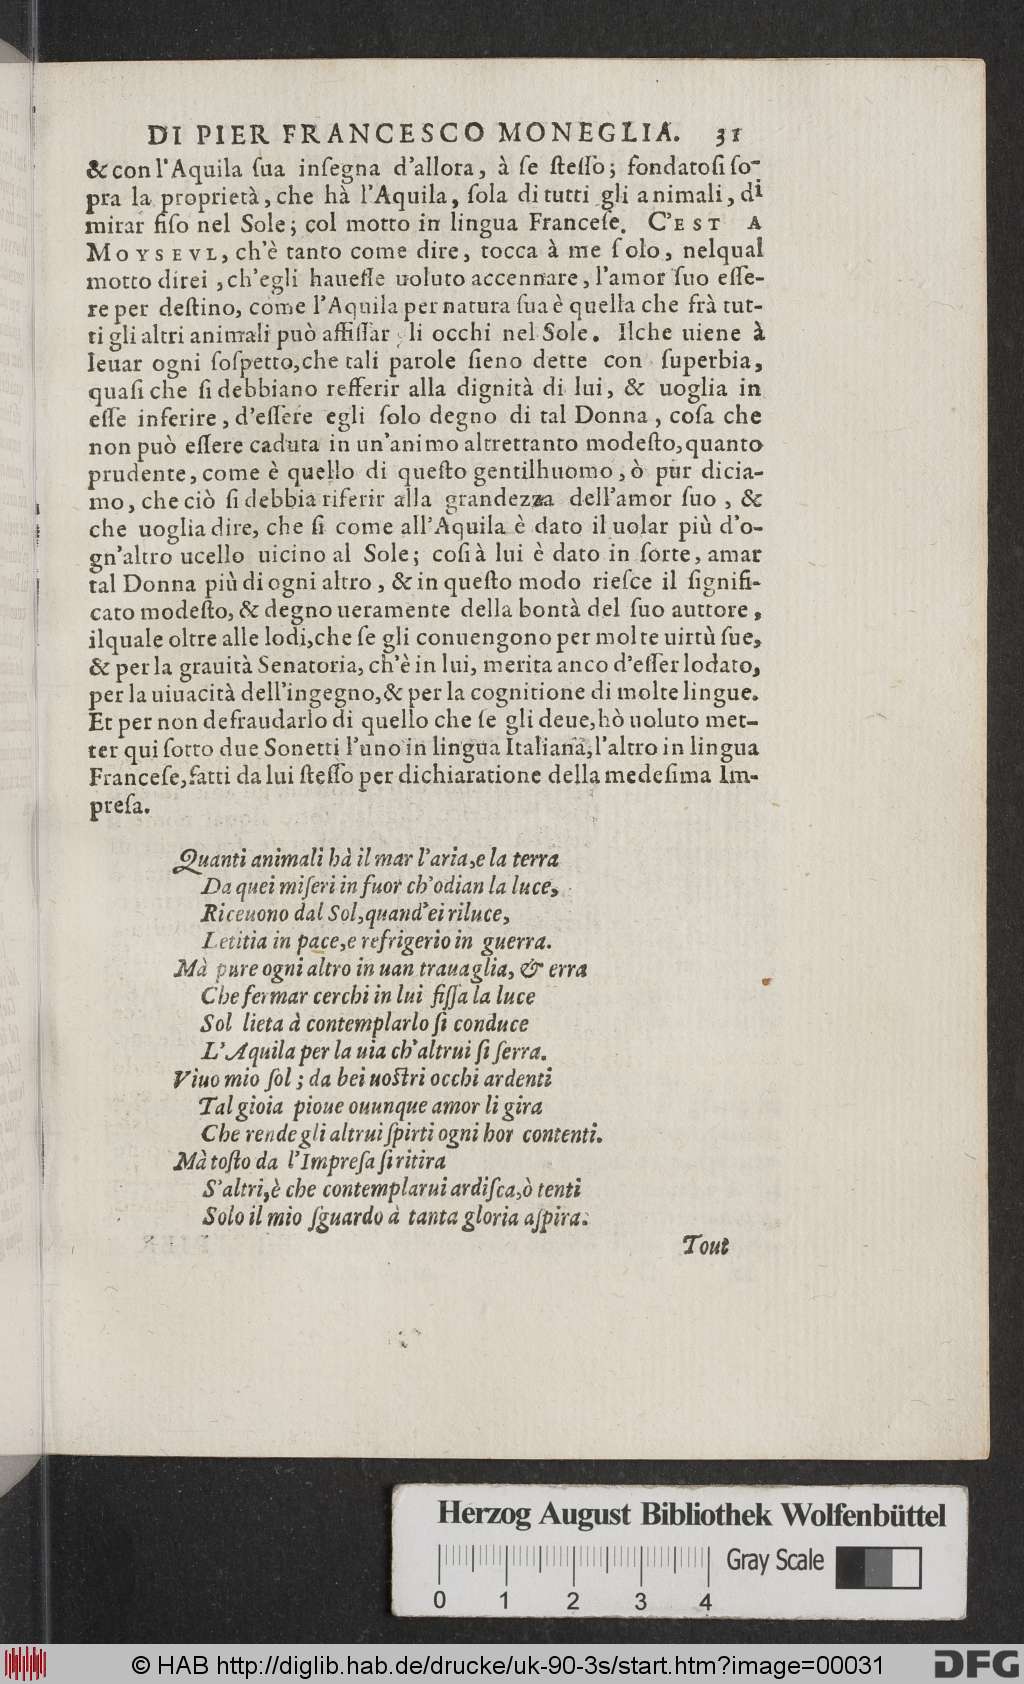 DI PIER FRANCESCO MONEGLIA. 31
& con l'Aquila ſua inſegna d'allora, à ſe ſteſſo; fondatoſi ſo-
pra la proprietà, che hà l'Aquila, ſola di tutti gli animali, di
mirar fiſo nel Sole; col motto in lingua Franceſe. C'EST A
MOYSEVL, ch'è tanto come dire, tocca à me ſolo, nelqual
motto direi, ch'egli haueſſe uoluto accennare, l'amor ſuo eſſe-
re per deſtino, come l'Aquila per natura ſua è quella che frà tut-
ti gli altri animali può affiſſar li occhi nel Sole. Ilche uiene à
leuar ogni ſoſpetto, che tali parole ſieno dette con ſuperbia,
quaſi che ſi debbiano refferir alla dignità di lui, & uoglia in
eſſe inferire, d'eſſere egli ſolo degno di tal Donna, coſa che
non può eſſere caduta in un'animo altrettanto modeſto, quanto
prudente, come è quello di queſto gentilhuomo, ò pur dicia-
mo, che ciò ſi debbia riferir alla grandezza dell'amor ſuo, &
che uoglia dire, che ſi come all'Aquila è dato il uolar più d'o-
gn'altro ucello uicino al Sole; coſi à lui è dato in ſorte, amar
tal Donna più di ogni altro, & in queſto modo rieſce il ſignifi-
cato modeſto, & degno ueramente della bontà del ſuo auttore,
ilquale oltre alle lodi, che ſe gli conuengono per molte uirtù ſue,
& per la grauità Senatoria, ch'è in lui, merita anco d'eſſer lodato,
per la uiuacità dell'ingegno, & per la cognitione di molte lingue.
Et per non defraudarlo di quello che ſe gli deue, hò uoluto met-
ter qui ſotto due Sonetti l'uno in lingua Italiana, l'altro in lingua
Franceſe, fatti da lui ſteſſo per dichiaratione della medeſima Im-
preſa.
Quanti animali hà il mar l'aria, e la terra
Da quei miſeri in fuor ch'odian la luce,
Riceuono dal Sol, quand'ei riluce,
Letitia in pace, e refrigerio in guerra.
Mà pure ogni altro in uan trauaglia, & erra
Che fermar cerchi in lui fiſſa la luce
Sol lieta à contemplarlo ſi conduce
L'Aquila per la uia ch'altrui ſi ſerra.
Viuo mio ſol; da bei uoſtri occhi ardenti
Tal gioia pioue ouunque amor li gira
Che rende gli altrui ſpirti ogni hor contenti.
Mà toſto da l'Impreſa ſi ritira
S'altri, è che contemplarui ardiſca, ò tenti
Solo il mio ſguardo à tanta gloria aſpira.
Tout
Herzog August Bibliothek Wolfenbüttel
Gray Scale
0 1 2 3 4
© HAB http://diglib.hab.de/drucke/uk-90-3s/start.htm?image=00031
DFG